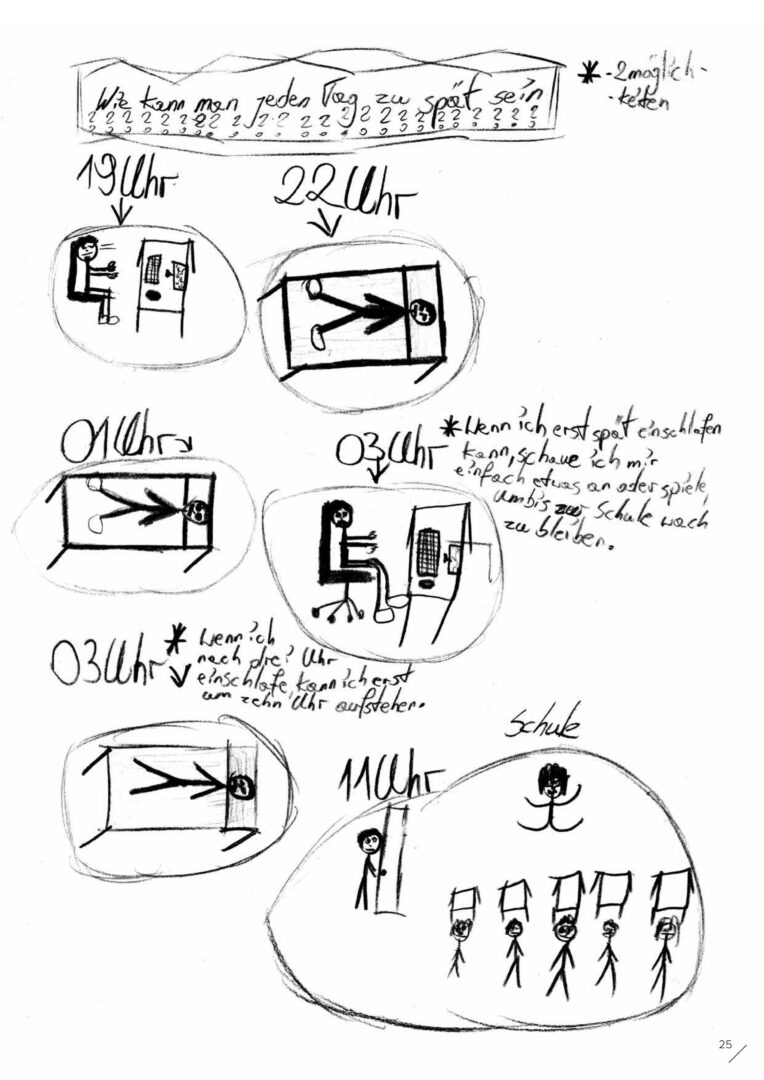 Wie kann man jeden Tag zu spät sein
? ? ? ? ? ? ? ? ? ? ? ? ? ? ? ? ? ? ?
* - 2 möglich-
- keiten
19 Uhr
22 Uhr
01 Uhr
03 Uhr
* Wenn ich erst spät einschlafen
kann, schaue ich mir
einfach etwas an oder spiele,
um bis zur Schule wach
zu bleiben.
03 Uhr
* Wenn ich
nach drei Uhr
einschlafe, kann ich erst
um zehn Uhr aufstehen.
Schule
11 Uhr
25